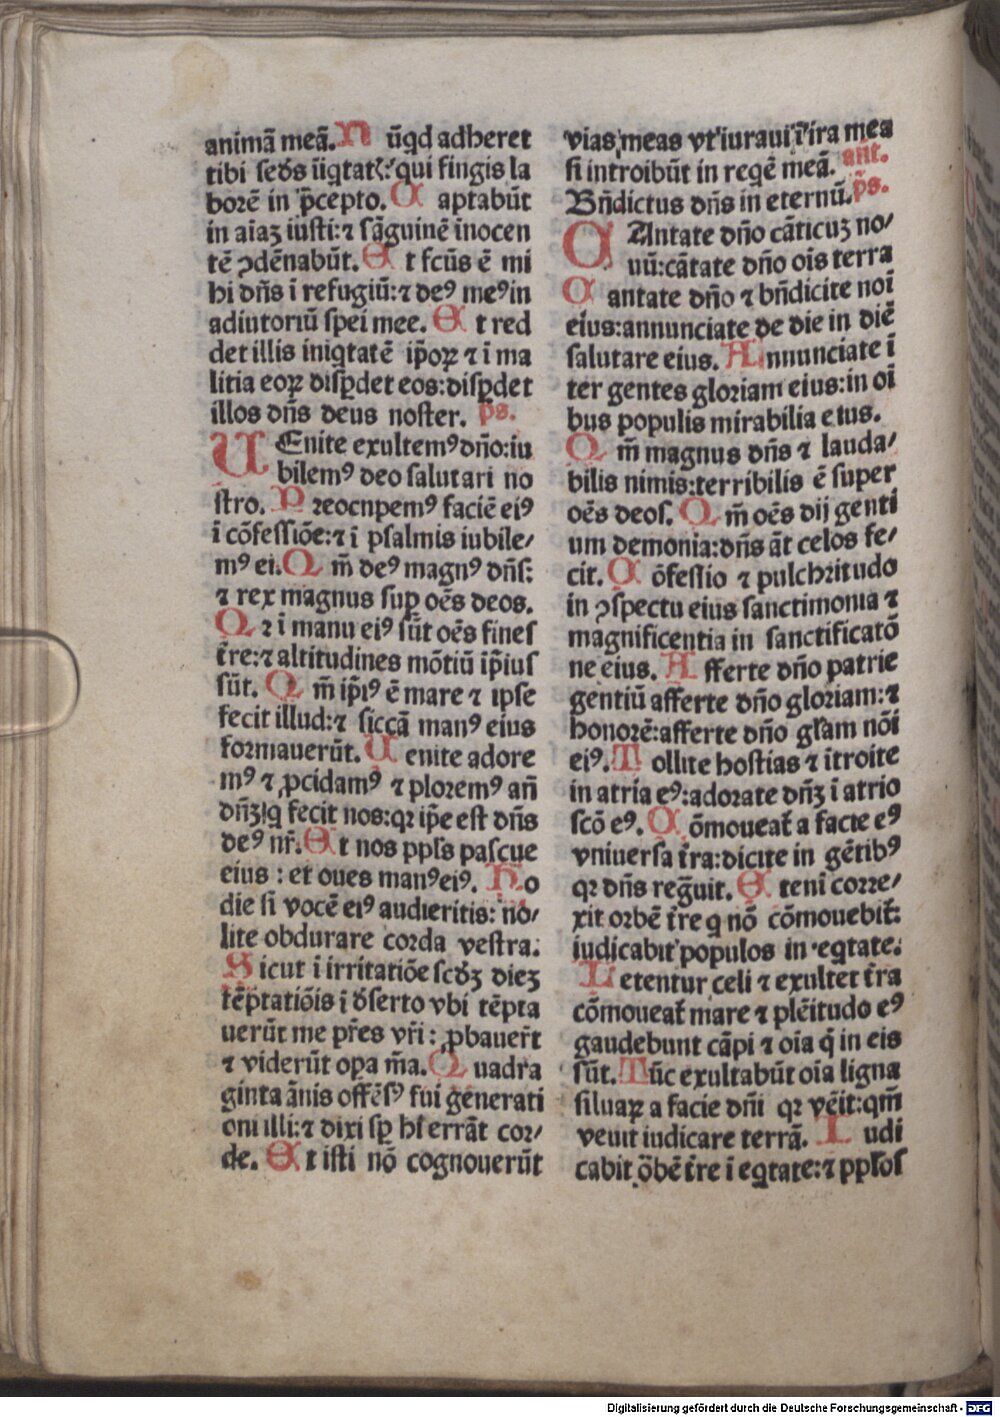 animā meā. N ūqd adheret
tibi sedes iniqtatꝭ: qui fingis la
borē in p̄cepto. C aptabūt
in aiāꝫ iusti: ⁊ sāguinē inocen
tē ꝯdēnabūt. E t fcūs ē mi
hi dn̄s ī refugiū: ⁊ deꝰ meꝰ in
adiutoriū spei mee. E t red
det illis iniqtatē ip̄oꝝ ⁊ ī ma
litia eoꝝ disꝑdet eos: disꝑdet
illos dn̄s deus noster. ps.
UEnite exultemꝰ dn̄o: iu
bilemꝰ deo salutari no
stro. P reocnpemꝰ faciē eiꝰ
ī cōfessiōe: ⁊ ī psalmis iubile/
mꝰ ei. Q m̄ deꝰ magnꝰ dn̄s:
⁊ rex magnus suꝑ oēs deos.
Q ꝛ ī manu eiꝰ sūt oēs fines
t̄re: ⁊ altitudines mōtiū ip̄ius
sūt. Q m̄ ip̄iꝰ ē mare ⁊ ipse
fecit illud: ⁊ siccā manꝰ eius
formauerūt. U enite adore
mꝰ ⁊ ꝓcidamꝰ ⁊ ploremꝰ an̄
dn̄ꝫ q fecit nos: qꝛ ip̄e est dn̄s
deꝰ nr̄. E t nos ppl̄s pascue
eius : et oues manꝰ eiꝰ. H o
die si vocē eiꝰ audieritis: no/
lite obdurare corda vestra.
S icut ī irritatiōe scd̄ꝫ dieꝫ
tēptatiōis ī d̄serto vbi tēpta
uerūt me pr̄es vr̄i : ꝓbauer̄t
⁊ viderūt oꝑa m̄a. Q uadra
ginta ānis offēsꝰ fui generati
oni illi: ⁊ dixi sꝑ hi errāt cor/
de. E t isti nō cognouerūt
vias meas vt iuraui ī ira mea
si introibūt in reqē meā. ant.
Bn̄dictus dn̄s in eternū. ps.
CAntate dn̄o cāticuꝫ no/
uū: cātate dn̄o ois terra
C antate dn̄o ⁊ bn̄dicite noī
eius: annunciate de die in diē
salutare eius. A nnunciate ī
ter gentes gloriam eius: in oī
bus populis mirabilia eius.
Q m̄ magnus dn̄s ⁊ lauda/
bilis nimis: terribilis ē super
oēs deos. Q m̄ oēs dij genti
um demonia: dn̄s āt celos fe/
cit. C ōfessio ⁊ pulchritudo
in ꝯspectu eius sanctimonia ⁊
magnificentia in sanctificatō
ne eius. A fferte dn̄o patrie
gentiū afferte dn̄o gloriam: ⁊
honorē: afferte dn̄o gl̄am nōi
eiꝰ. T ollite hostias ⁊ ītroite
in atria eꝰ: adorate dn̄ꝫ ī atrio
scō eꝰ. C ōmoueat̄ a facie eꝰ
vniuersa t̄ra: dicite in gētibꝰ
qꝛ dn̄s reḡuit. E tenī corre/
xit orbē t̄re q nō cōmouebit̄:
iudicabit populos in eqtate.
L etentur celi ⁊ exultet t̄ra
cōmoueat̄ mare ⁊ plēitudo eꝰ
gaudebunt cāpi ⁊ oīa q̄ in eis
sūt. T ūc exultabūt oīa ligna
siluaꝝ a facie dn̄i qꝛ vēit: qm̄
venit iudicare terrā. I udi
cabit ōbē t̄re ī eqtate: ⁊ ppl̄os
Digitalisierung gefördert durch die Deutsche Forschungsgemeinschaft - DFG